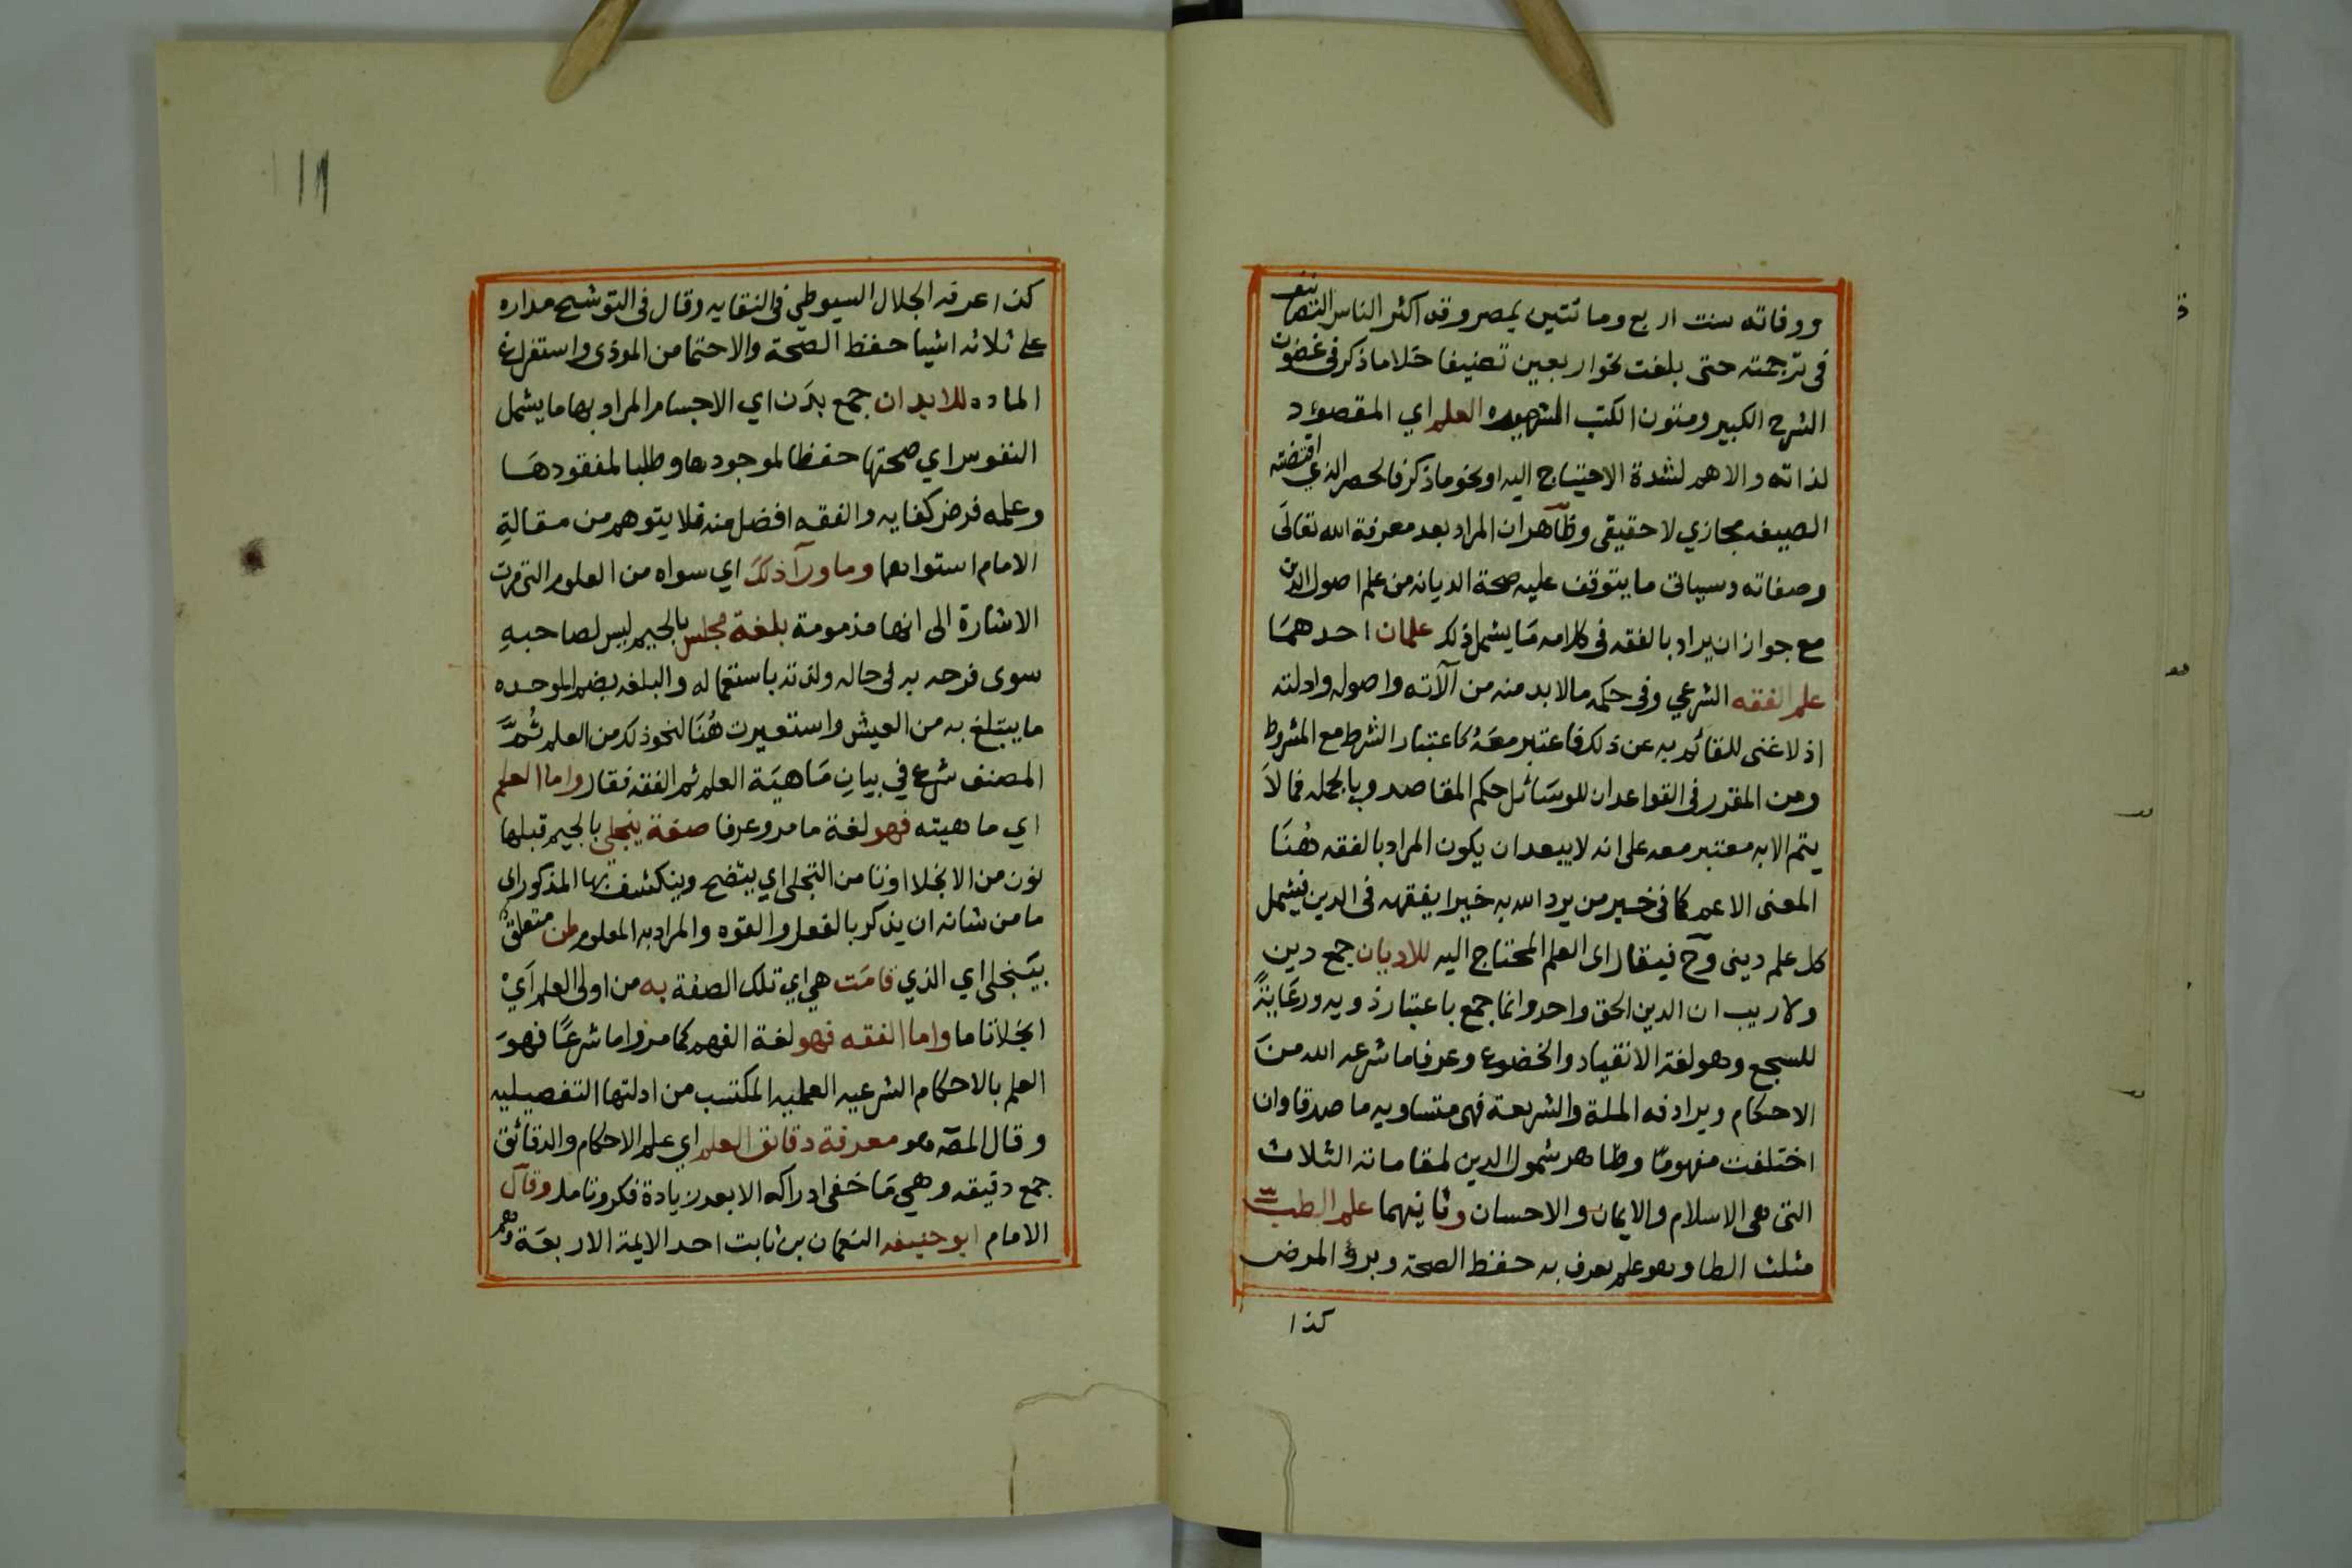 ووفاته سنت اربع وماتتين بمصر وقد اكثر الناس التصانيف
فى ترجمته حتى بلغت نحوار بعين تصنيفا خلا ما ذكر فى غضون
الشرح الكبير ومتون الكتب المشهوره العلم اي المقصود
لذاته والاهم لشدة الاحتياج اليه او نحو ما ذكر فالحصر الذي اقتضته
الصيغه مجازي لا حقيقى وظاهر ان المراد بعد معرفة الله تعالى
وصفاته وسياتى ما يتوقف عليه صحة الديانه من علم اصول الدين
مع جواز ان يراد بالفقه فى كلامه مَا يشمل ذلك علمان احدهمَا
علم الفقه الشرعي وفى حكمه مالا بد منه من آلاته واصوله وادلته
اذ لا غنى للقائم به عن ذلك فاعتبر معَهُ كاعتبار الشرط مع المشروط
ومن المقرر فى القواعد ان للوسَائل حكم المقاصد وبالجمله فمالاَ
يتم الا به معتبر معه على انه لا يبعد ان يكون المراد بالفقه هُنَا
المعنى الاعم كما فى خبر من يرد الله به خيرا يفقهه فى الدين فيشمل
كل علم دينى وح فيقال اى العلم المحتاج اليه للاديان جمع دين
ولا ريب ان الدين الحق واحد وانما جمع باعتبار ذويه ورعَايَةً
للسجع وهو لغة الانقياد والخضوع وعرفا ما شرعه الله منَ
الاحكام ويرادفه الملة والشريعة فهى متساويه ما صدقا وان
اختلفت مفهومًا وظاهر شمول الدين لمقاماته الثلاث
التى هى الاسلام والايمان والاحسان وثانيهما علم الطب
مثلث الطا وهو علم يعرف به حفظ الصحة وبرؤ المرض
كذا
كذا عرفه الجلال السيوطي فى النقايه وقال فى التوشيح مداره
على ثلاثه اشيا حفظ الصحة والاحتما من الموذى واستفراغ
الماده للابدان جمع بدَن اي الاجسام المراد بها ما يشمل
النفوس اي صحتها حفظا لموجودها وطلبا لمفقودهَا
وعلمه فرض كفايه والفقه افضل منه فلا يتوهم من مقالةِ
الامام استواهما وما ورآ ذلكَ اي سواه من العلوم التى مرت
الاشارة الى انها مذمومة بلغة مجلس بالجيم ليس لصاحبهِ
سوى فرحه به فى حاله ولذته باستعماله والبلغه بضم الموحده
ما يبتلغ به من العيش واستعيرت هُنَا لنحو ذلك من العلم ثُمَّ
المصنف شرع في بيانِ مَاهيَة العلم ثم الفقه فقال واما العلم
اي ماهيته فهو لغة ما مر وعرفا صفة ينجلى بالجيم قبلها
نون من الانجلا او تا من التجلى اي يتضح وينكشف بها المذكور اى
ما من شانه ان يذكر بالفعل او القوه والمراد به المعلوم لمن متعلق
بيَنجلى اي الذي قامَت هي اي تلك الصفة به من اولى العلم اَيْ
انجلاتاما واما الفقه فهو لغة الفهم كما مر واما شرعًا فهوَ
العلم بالاحكام الشرعيه العمليه المكتسب من ادلتها التفصيليه
وقال المصَ هو معرفة دقائق العلم اي علم الاحكام والدقائق
جمع دقيقه وهي مَا خفى ادراكه الا بعد زيادة فكر وتامل وقال
الامام ابو حنيفه النعمان بن ثابت احد الايمة الاربعَة وهم